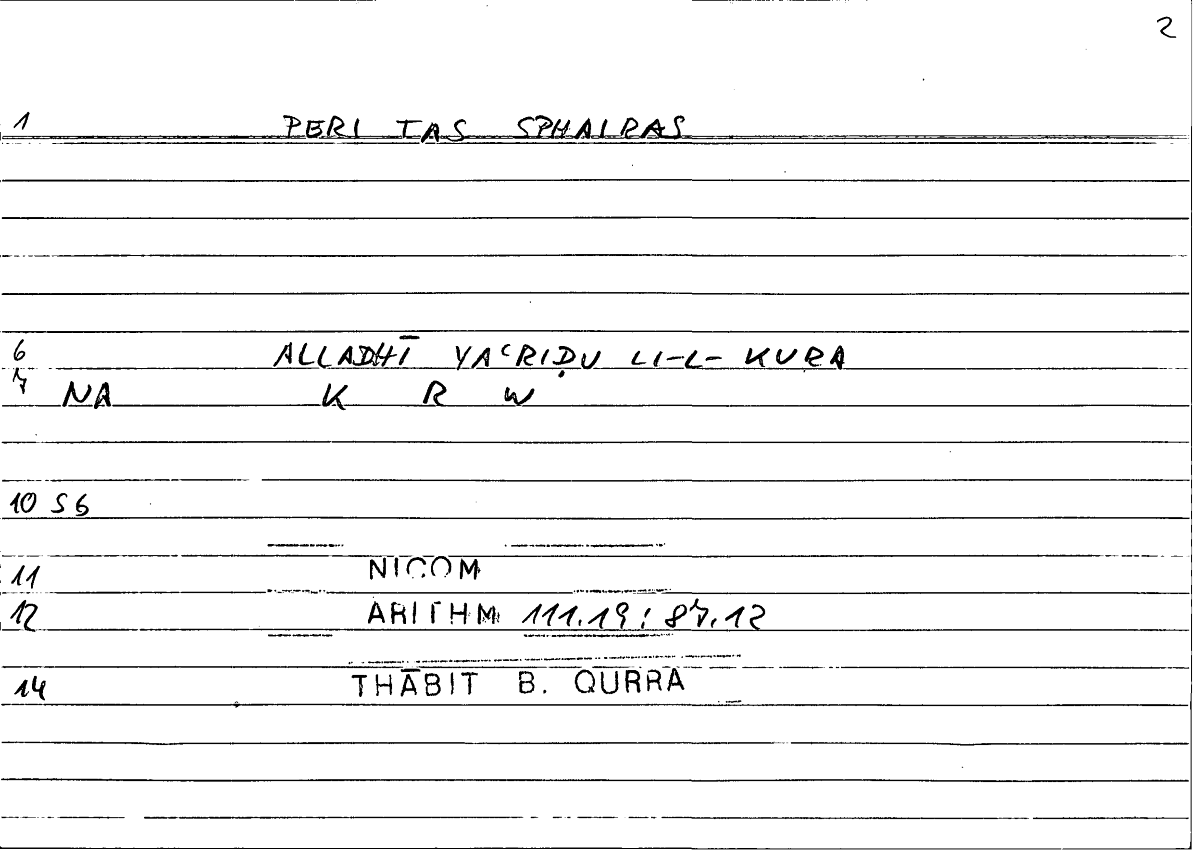 2
1 PERI TAS SPHAIRAS
6 ALLADHĪ YAʿRIḌU LI-L- KURA
7 NA K R W
10 S6
11 NICOM
12 ARITHM 111.19; 87.12
14 THĀBIT B. QURRA